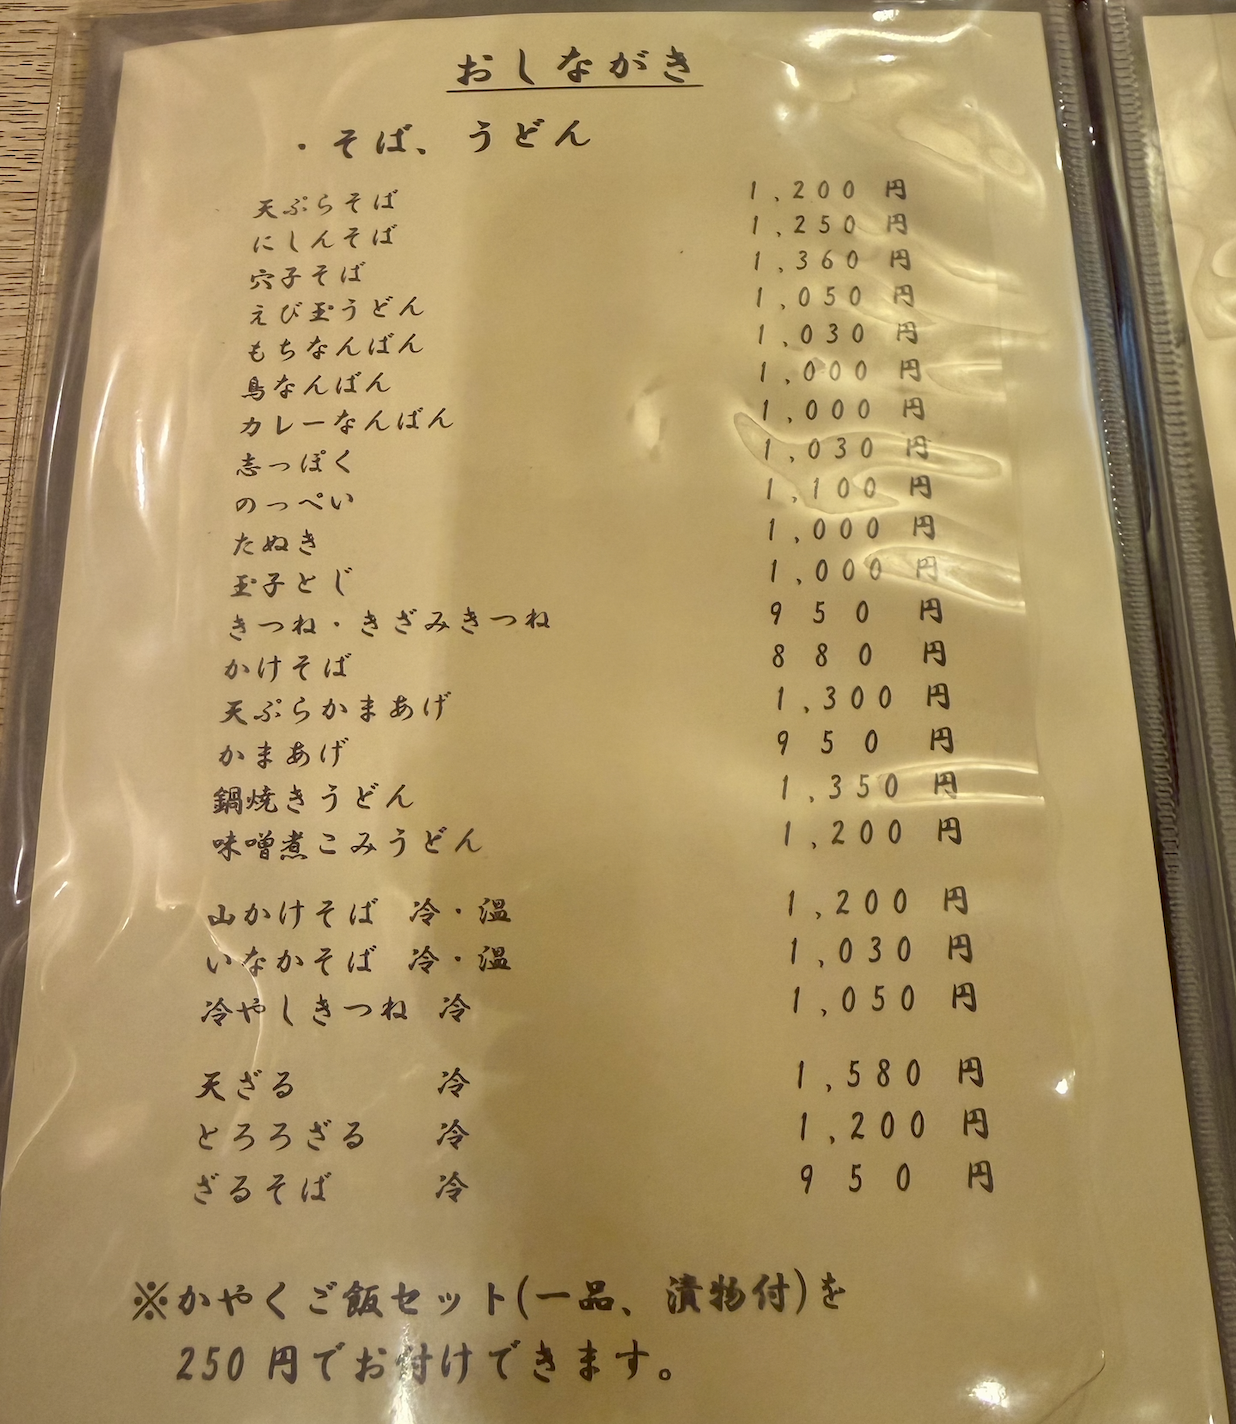 おしながき
・そば、うどん
天ぷらそば 1,200 円
にしんそば 1,250 円
穴子そば 1,360 円
えび玉うどん 1,050 円
もちなんばん 1,030 円
鳥なんばん 1,000 円
カレーなんばん 1,000 円
志っぽく 1,030 円
のっぺい 1,100 円
たぬき 1,000 円
玉子とじ 1,000 円
きつね・きざみきつね 950 円
かけそば 880 円
天ぷらかまあげ 1,300 円
かまあげ 950 円
鍋焼きうどん 1,350 円
味噌煮こみうどん 1,200 円
山かけそば 冷・温 1,200 円
いなかそば 冷・温 1,030 円
冷やしきつね 冷 1,050 円
天ざる 冷 1,580 円
とろろざる 冷 1,200 円
ざるそば 冷 950 円
※かやくご飯セット(一品、漬物付)を
250 円でお付けできます。